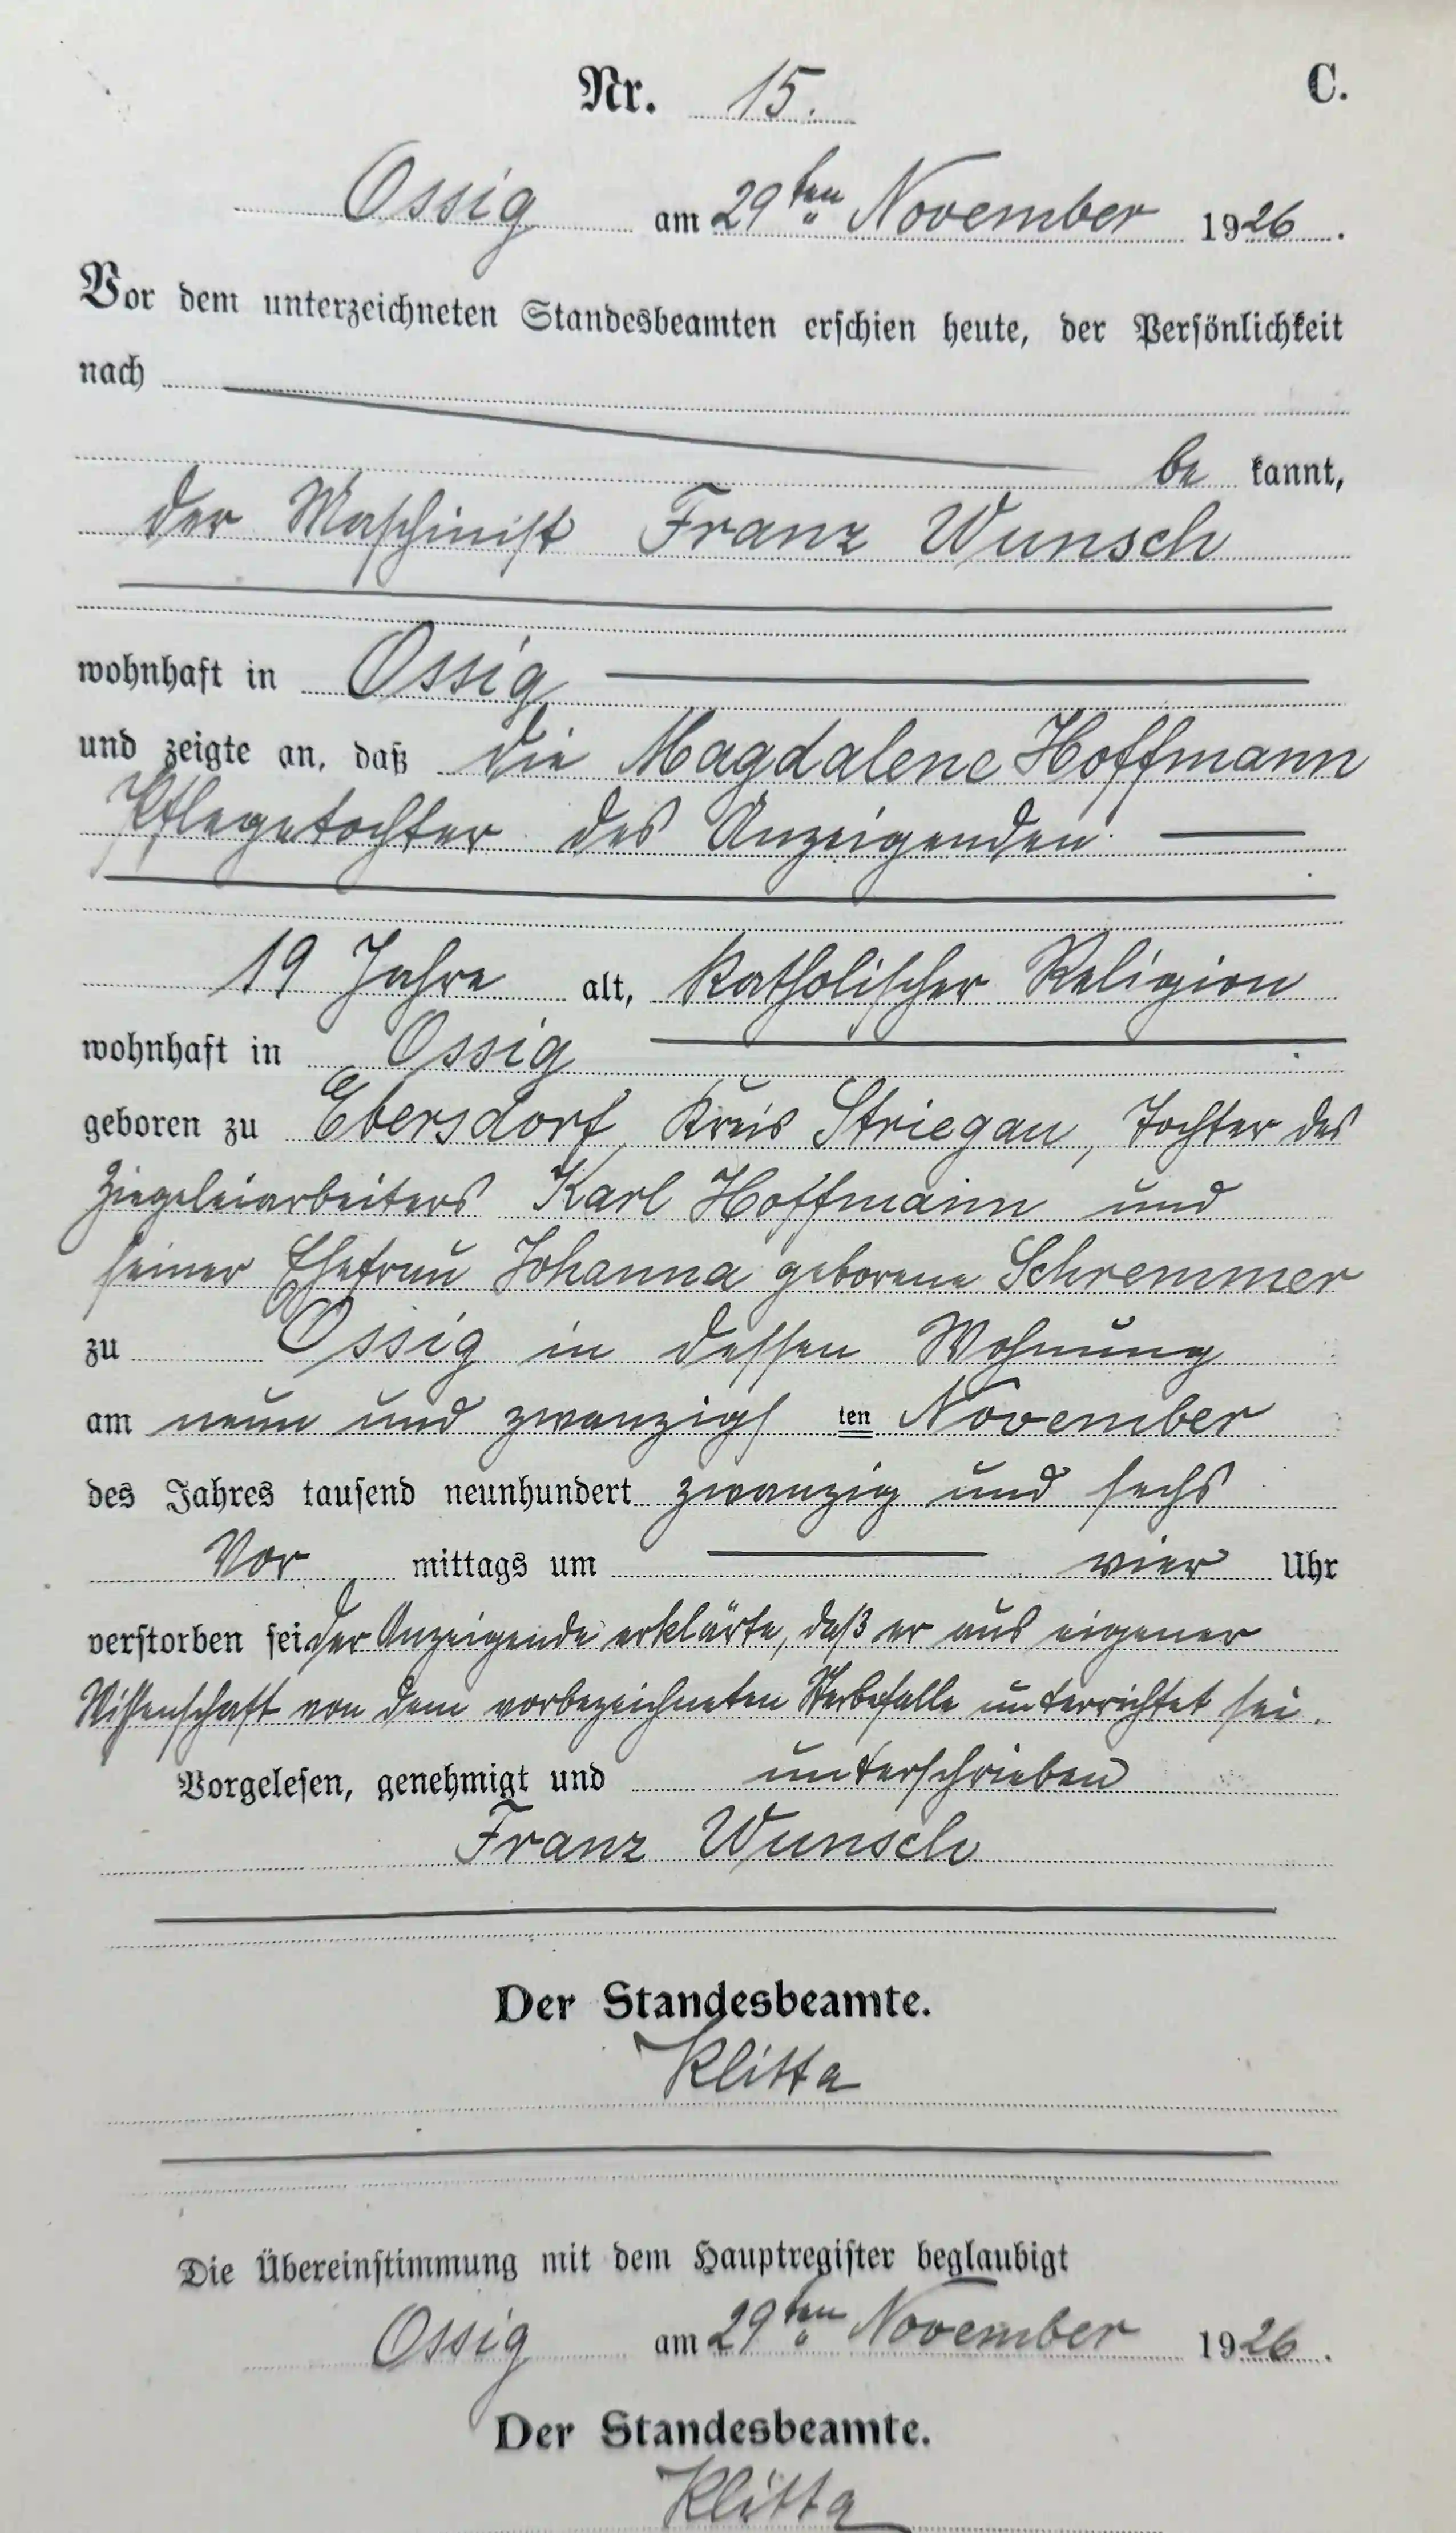 Nr. 15. C.
Ossig am 29ten November 1926.
Vor dem unterzeichneten Standesbeamten erschien heute, der Persönlichkeit
nach
be kannt,
der Maschinist Franz Wunsch
wohnhaft in Ossig
und zeigte an, daß die Magdalene Hoffmann
Pflegetochter des Anzeigenden
19 Jahre alt, katholischer Religion
wohnhaft in Ossig
geboren zu Ebersdorf, Kreis Striegau, Tochter des
Ziegeleiarbeiters Karl Hoffmann und
seiner Ehefrau Johanna geborene Schremmer
zu Ossig in dessen Wohnung
am neun und zwanzigs ten November
des Jahres tausend neunhundert zwanzig und sechs
Vor mittags um vier Uhr
verstorben sei. Der Anzeigende erklärte, daß er aus eigener
Wissenschaft von dem vorbezeichneten Sterbefalle unterrichtet sei.
Vorgelesen, genehmigt und unterschrieben
Franz Wunsch
Der Standesbeamte.
Klitta
Die Übereinstimmung mit dem Hauptregister beglaubigt
Ossig am 29ten November 1926.
Der Standesbeamte.
Klitta